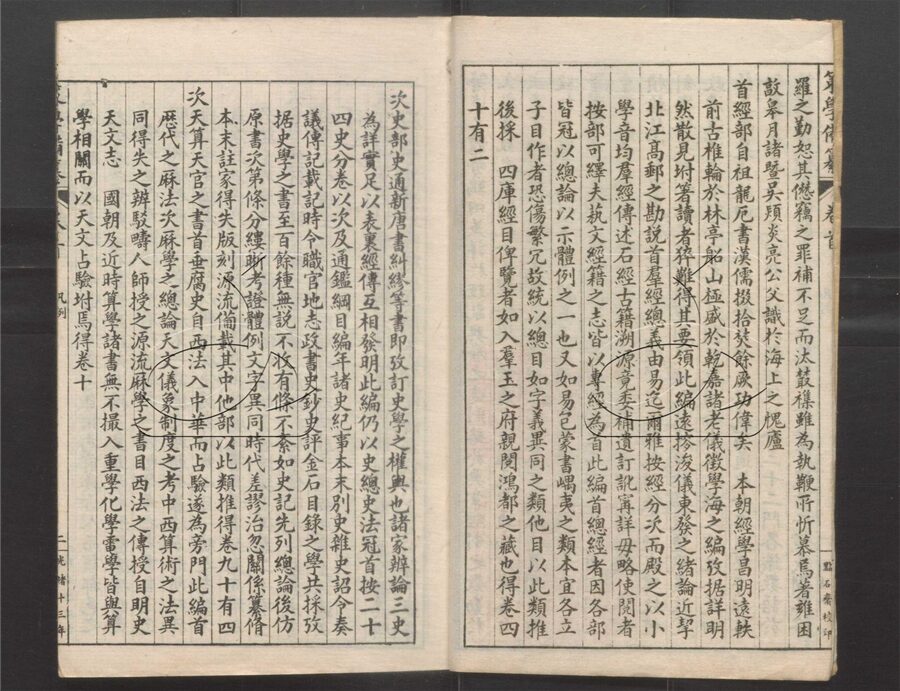 纂學備纂 卷首
羅之勤恕其僭竊之罪補不足而汰叢襍雖為執鞭所忻慕焉著雍困
敦皋月諸暨吳熲炎亮公父識於海上之愧廬
首經部自祖龍厄書漢儒掇拾焚餘厥功偉矣　本朝經學昌明遠軼
前古椎輪於林亭船山極盛於乾嘉諸老儀徵學海之編攷据詳明
然散見坿著讀者稡難得其要領此編遠摻浚儀東發之緒論近挈
北江高郵之勘說首羣經總義由易迄爾雅按經分次而殿之以小
學音均羣經傳述石經古籍溯源竟委補遺訂訛寗詳毋略使閱者
按部可繹夫執文經籍之志皆以專經為首此編首總經者因各部
皆冠以總論以示體例之一也又如易已蒙書嵎夷之類本宜各立
子目作者恐傷繁冗故統以總目如字義異同之類他目以此類推
後採　四庫經目俾覽者如入羣玉之府親閱鴻都之藏也得卷四
十有二
點石齋校印
次史部史通新唐書糾繆等書即攷訂史學之權輿也諸家辨論三史
為詳實足以表裏經傳互相發明此編仍以史總史法冠首按二十
四史分卷以次及通鑑綱目編年諸史紀事本末別史雜史詔令奏
議傳記載記時令職官地志政書史鈔史評金石目錄之學共採攷
据史學之書至百餘種無說不收有條不紊如史記先列總論後仿
原書次第條分縷晰考證體例文字異同時代差謬治忽關係纂脩
本末註家得失版刻源流備載其中他部以此類推得卷九十有四
次天算天官之書首垂腐史自西法入中華而占驗遂為旁門此編首
歷代之厤法次厤學之總論天文儀象制度之考中西算術之法異
同得失之辨駁疇人師授之源流厤學之書目西法之傳授自明史
天文志　國朝及近時算學諸書無不撮入重學化學雷學皆與算
學相關而以天文占驗坿焉得卷十
凡例
二 光緒十三年